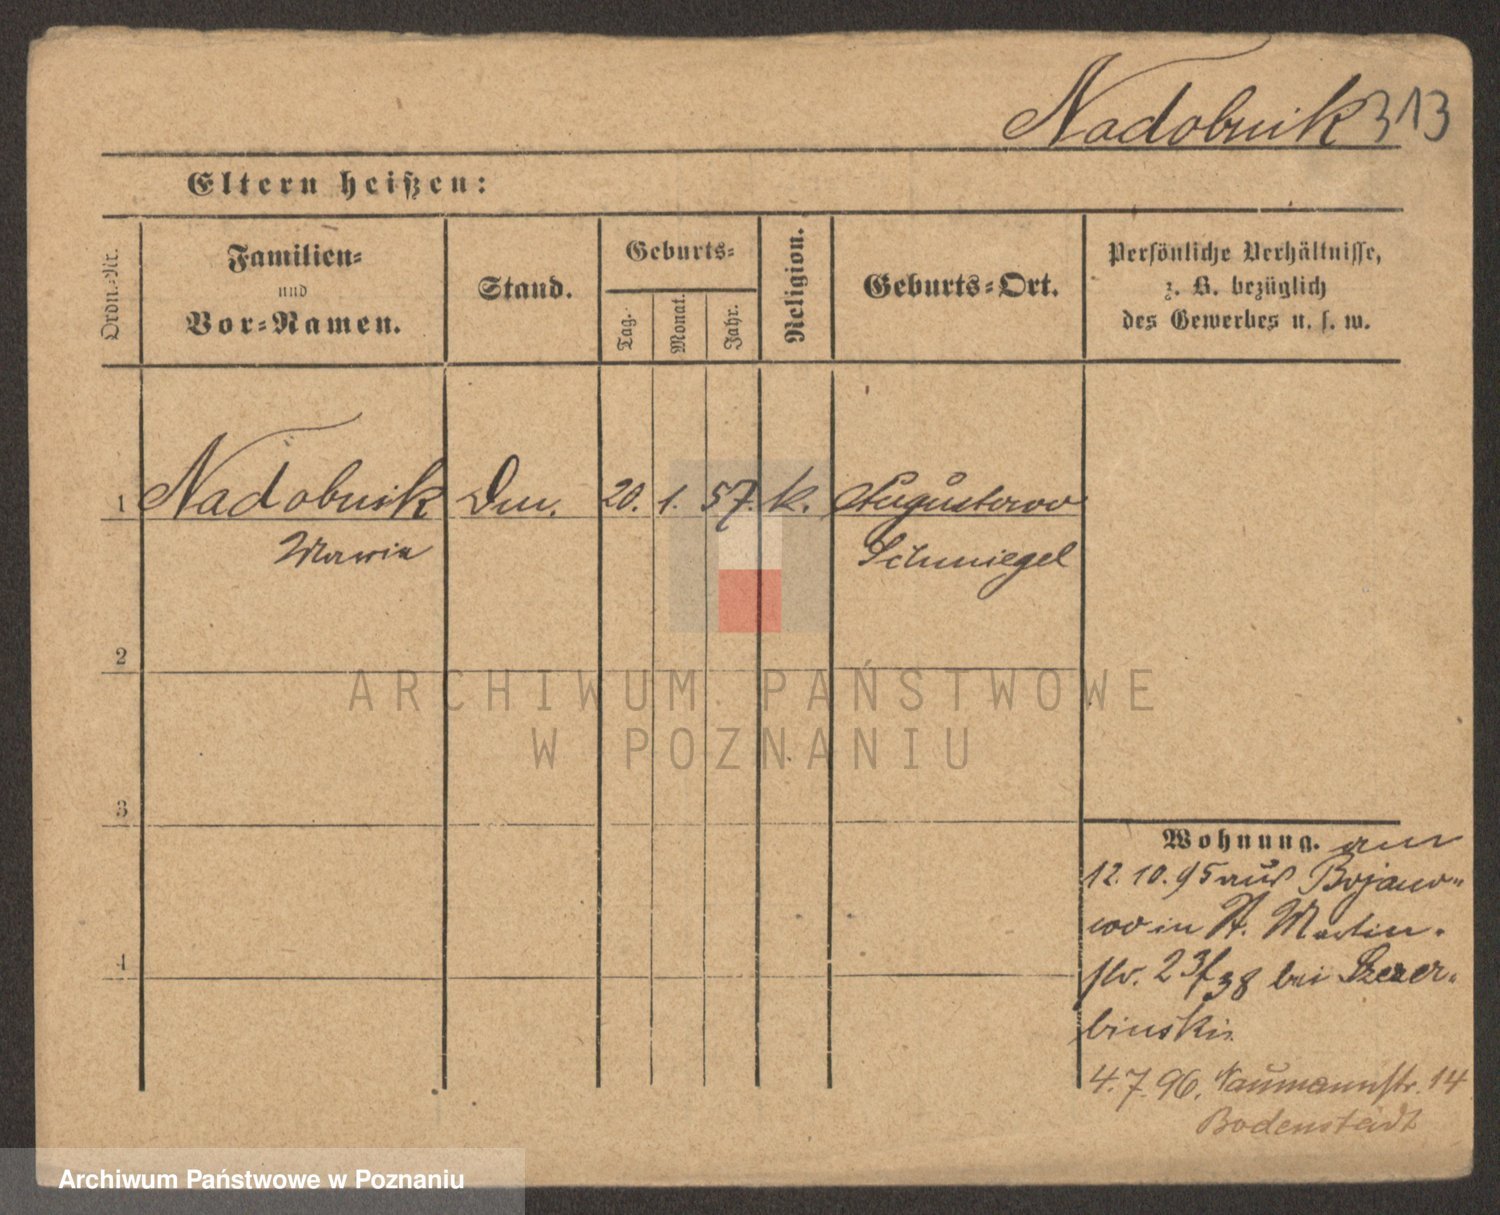 Nadobnik 313
Eltern heißen:
Ordn.-Nr.
Familien-
und
Vor-Namen.
Stand.
Geburts-
Tag.
Monat.
Jahr.
Religion.
Geburts-Ort.
Persönliche Verhältnisse,
z. B. bezüglich
des Gewerbes u. s. w.
1 Nadobnik 20. 1. 57. k. Augustowo
Maria Schmiegel
2
ARCHIWUM PAŃSTWOWE
W POZNANIU
3
Wohnung. am
12.10.95 aus Bojano-
wo in St. Martin-
4
str. 23 38 bei Szczer-
binski
4.7.96. Naumannstr. 14
Bodenstedt
Archiwum Państwowe w Poznaniu